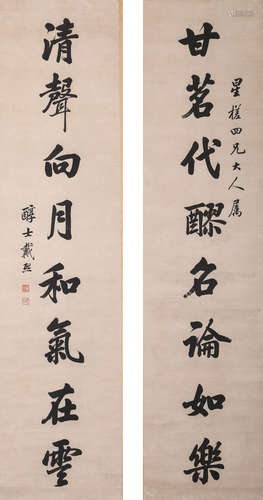 甘茗代醪名論如樂
星槎四兄大人属
清聲向月和氣在雲
醇士戴熙